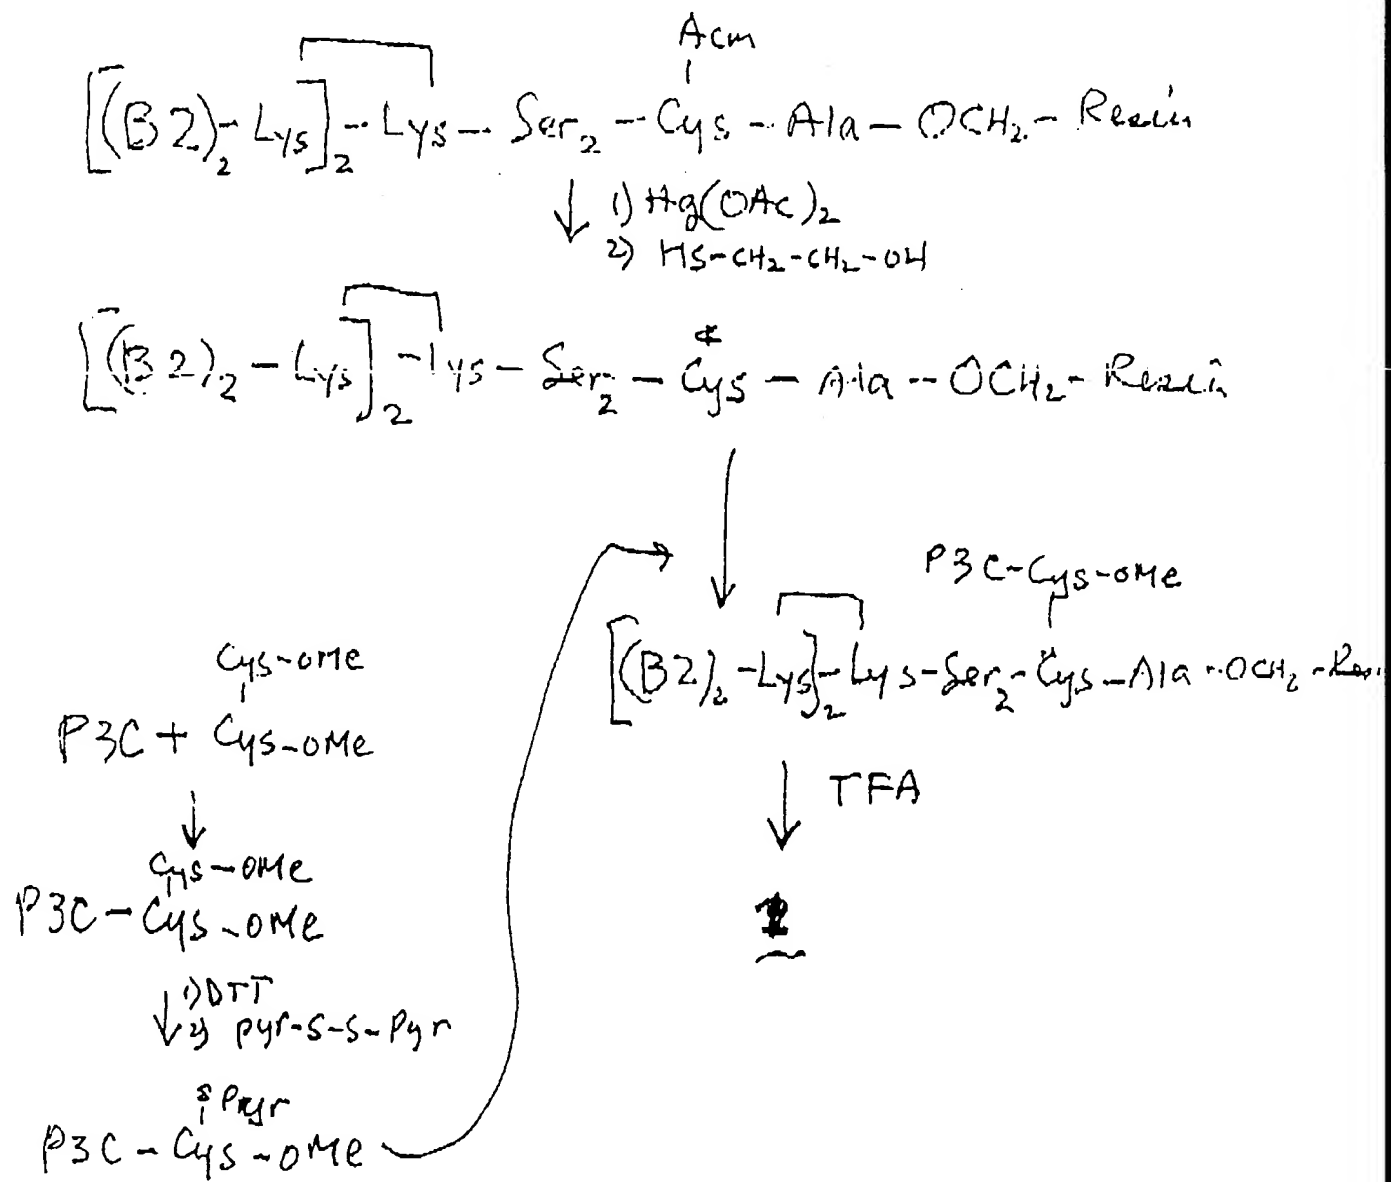 Acm
[(B2)2-Lys]2-Lys-Ser2-Cys-Ala-OCH2-Resin
1) Hg(OAc)2
2) HS-CH2-CH2-OH
[(B2)2-Lys]2-Lys-Ser2-Cys-Ala-OCH2-Resin
P3C-Cys-OMe
[(B2)2-Lys]2-Lys-Ser2-Cys-Ala-OCH2-Resin
Cys-OMe
P3C + Cys-OMe
TFA
Cys-OMe
P3C-Cys-OMe
1) DTT
2) pyr-S-S-Pyr
P3C-Cys-OMe